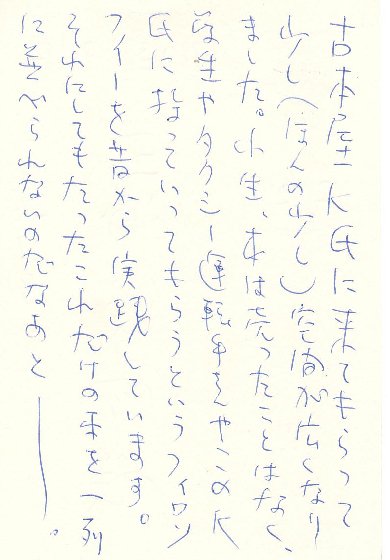 古本屋K氏に来てもらって
少し（ほんの少し）空間が広くなり
ました。小生、本は売ったことはなく
学生やタクシー運転手さんやこのK
氏に持っていってもらうというフィロソ
フィーを昔から実践しています。
それにしてもたったこれだけの本を一列
に並べられないのだなあと――。